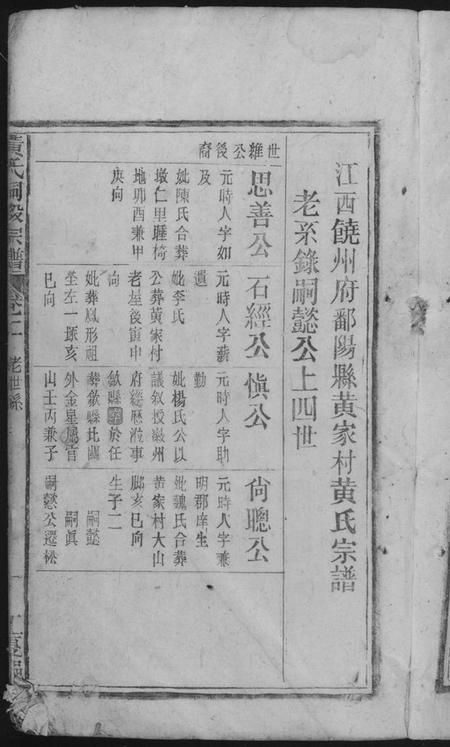 江西饒州府鄱陽縣黄家村黄氏宗譜
老系錄嗣懿公上四世
世維公後裔
思善公
元時人字如
及
妣陳氏合葬
墩仁里騹椅
地卯酉兼甲
庚向
石經公
元時人字薪
遺
妣李氏
公葬黄家村
老屋後寅申
向
妣葬鳳形祖
坐左一塚亥
巳向
慎公
元時人字助
勤
妣楊氏公以
議叙授徽州
府經歷涖事
歙縣卒於任
葬歙縣北關
外金星鳳官
山壬丙兼子
尙聰公
元時人字兼
明郡庠生
妣魏氏合葬
黄家村大山
鄢亥巳向
生子二
嗣懿
嗣眞
嗣懿公遷松
黄氏嗣毅宗譜
卷二
老世系